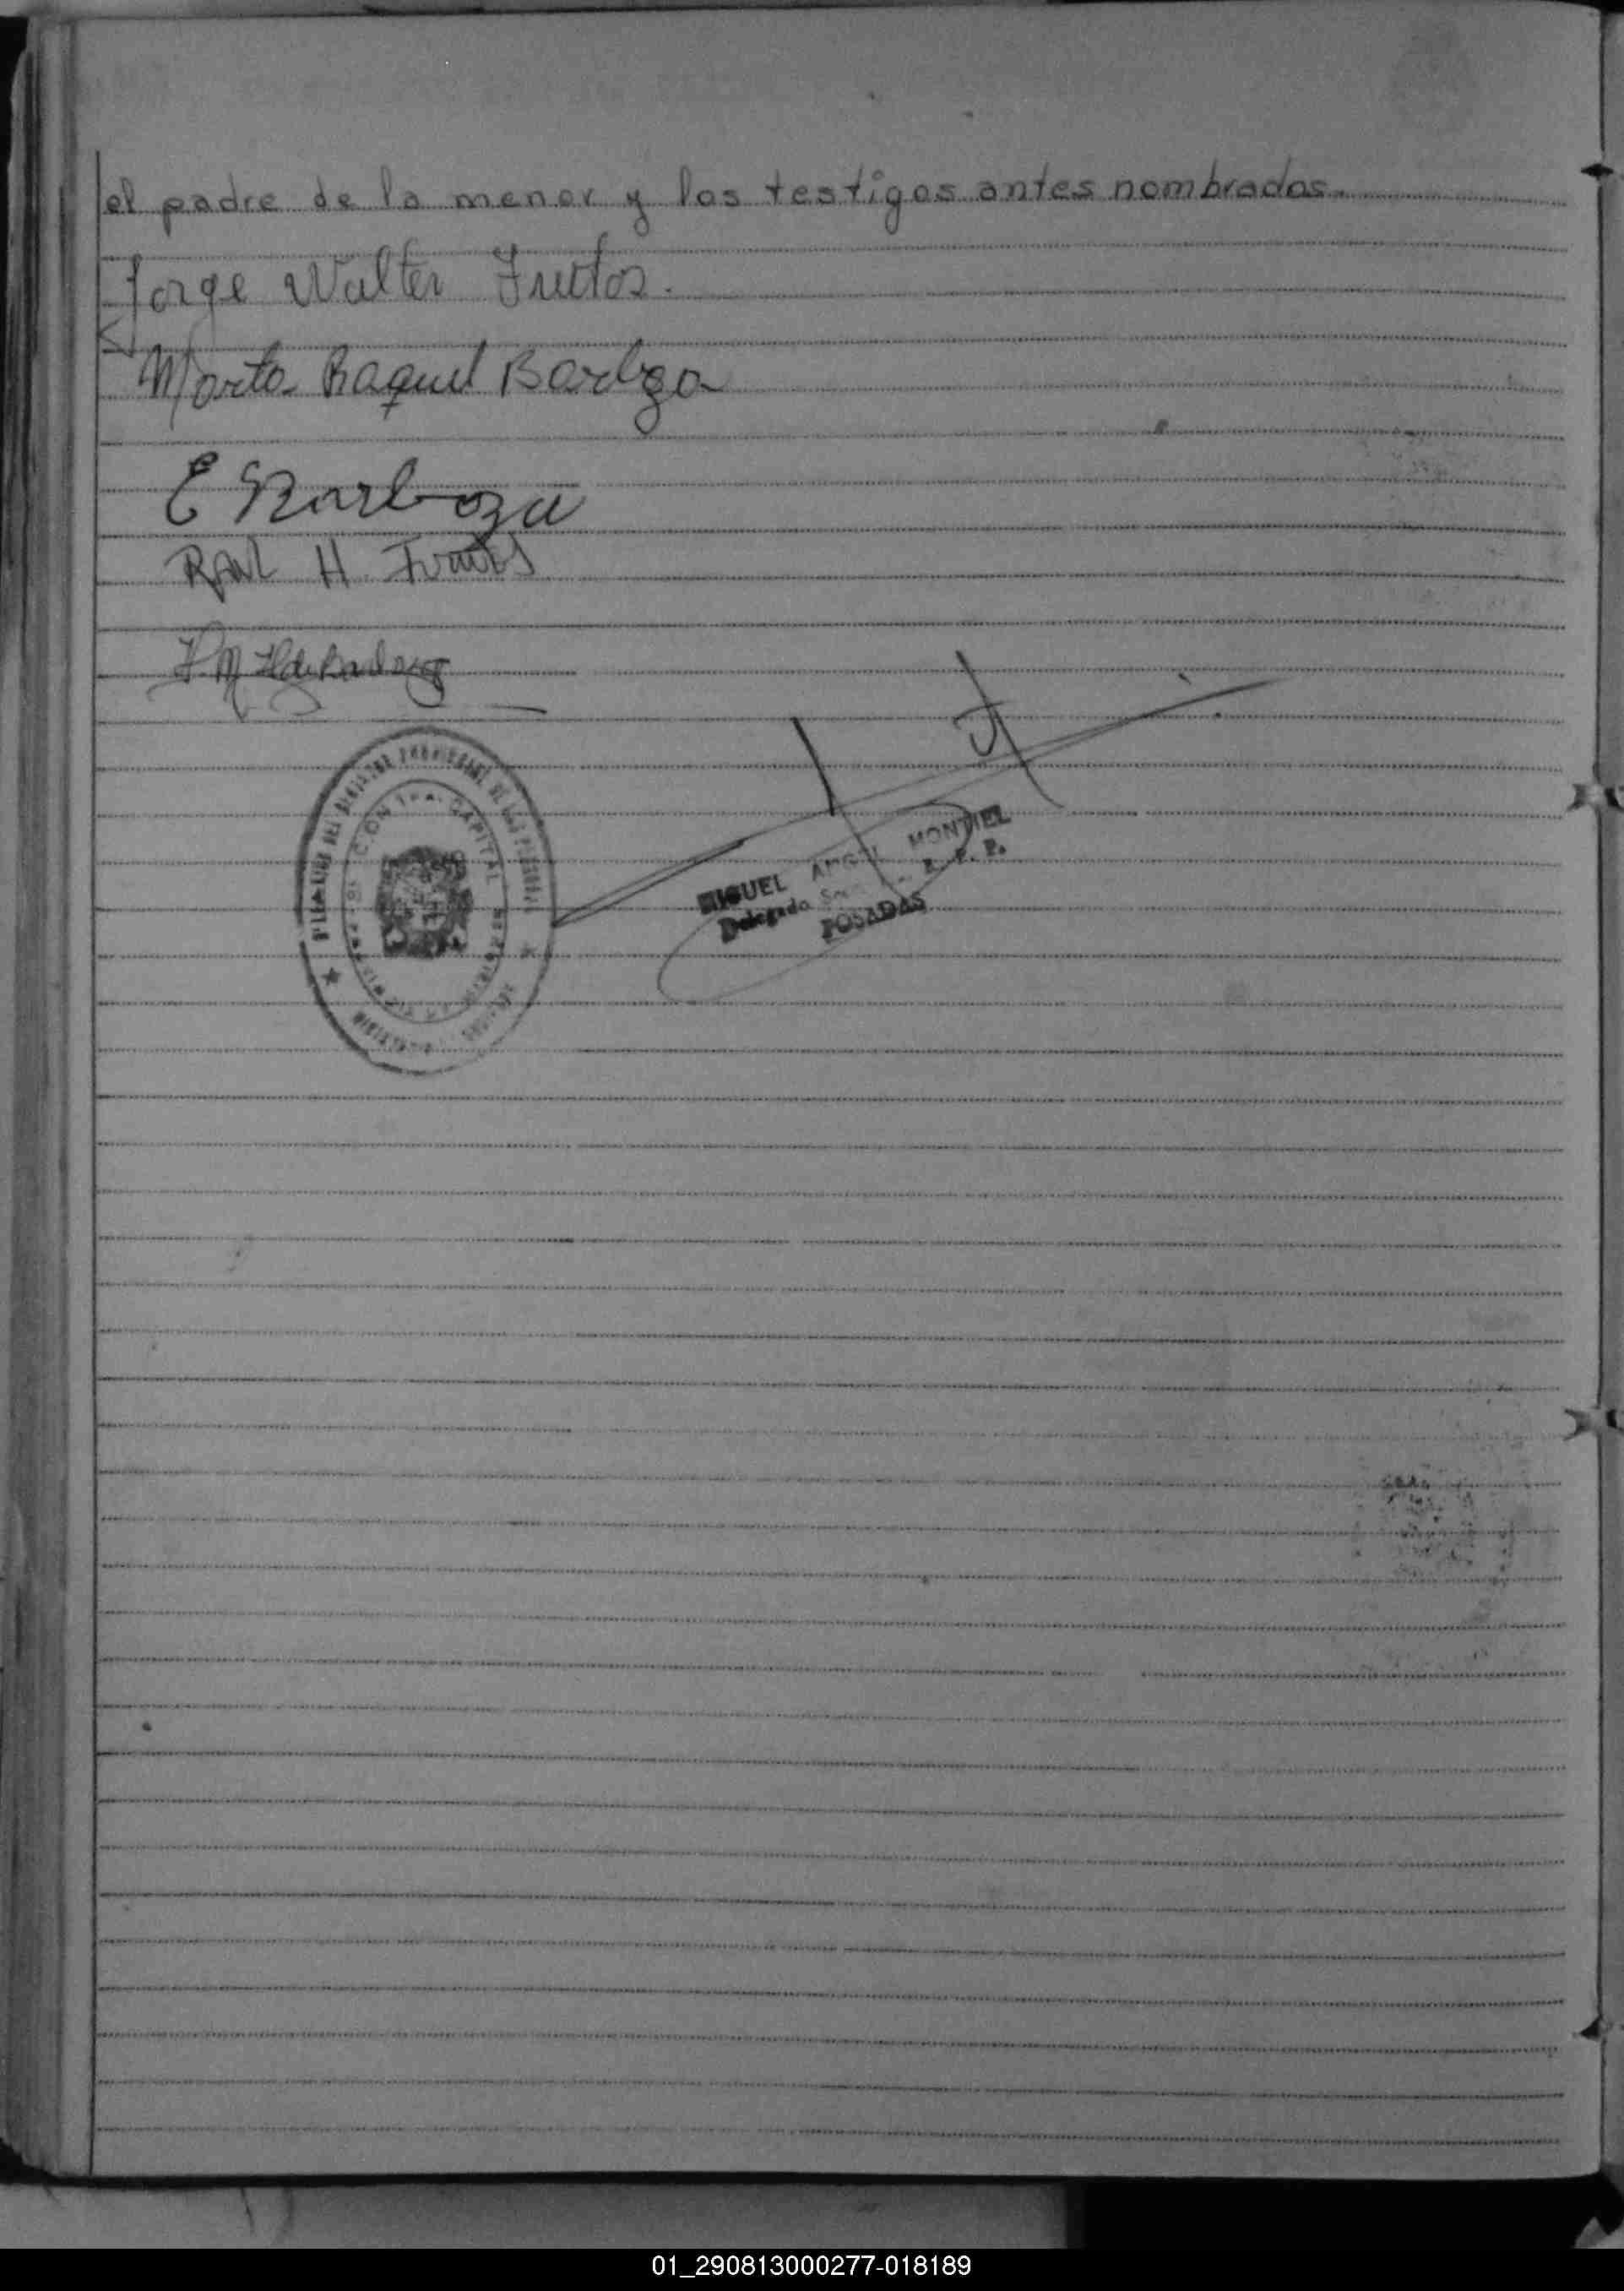 el padre de la menor y los testigos antes nombrados.
Jorge Walter Frutos.
Marta Raquel Barboza
E Barboza
RAUL H. Frutos
MIGUEL ANGEL MONTIEL
Delegado R. P. P.
POSADAS
CAPITAL
01_290813000277-018189